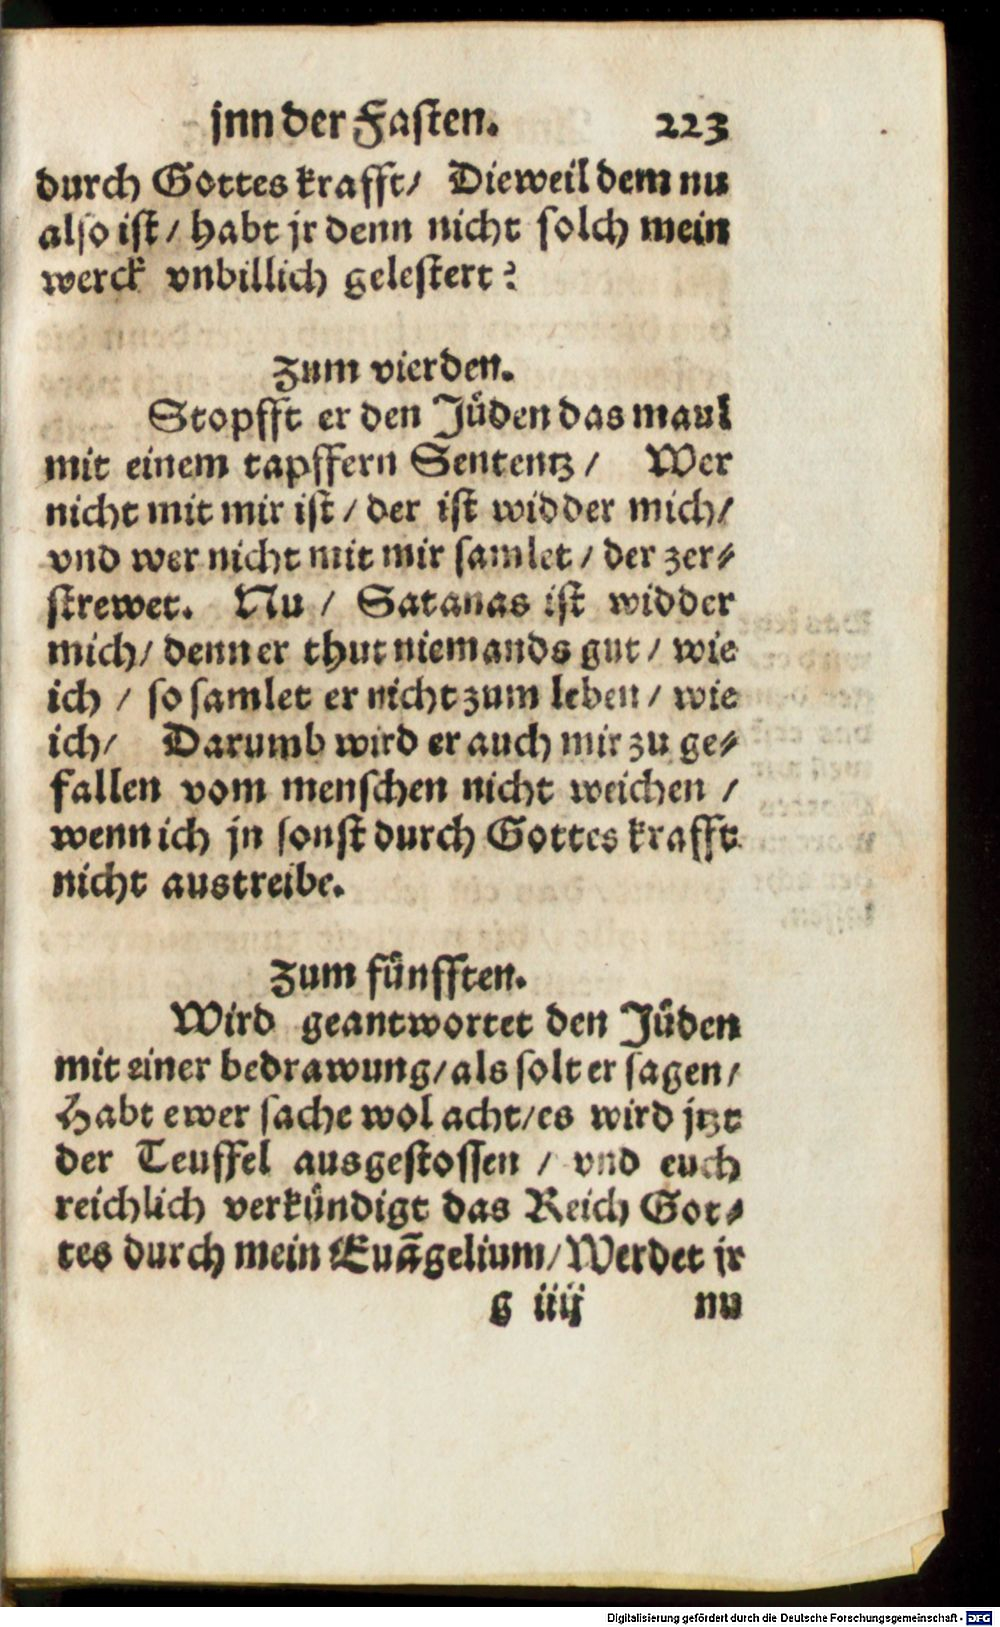 jnn der Fasten. 223
durch Gottes krafft/ Dieweil dem nu
also ist / habt jr denn nicht solch mein
werck vnbillich gelestert?
Zum vierden.
Stopfft er den Jüden das maul
mit einem tapffern Sententz / Wer
nicht mit mir ist / der ist widder mich/
vnd wer nicht mit mir samlet / der zer⸗
strewet. Nu / Satanas ist widder
mich/ denn er thut niemands gut / wie
ich / so samlet er nicht zum leben / wie
ich/ Darumb wird er auch mir zu ge⸗
fallen vom menschen nicht weichen /
wenn ich jn sonst durch Gottes krafft
nicht austreibe.
Zum fünfften.
Wird geantwortet den Jüden
mit einer bedrawung/ als solt er sagen/
Habt ewer sache wol acht/ es wird jtzt
der Teuffel ausgestossen / vnd euch
reichlich verkündigt das Reich Got⸗
tes durch mein Euãgelium/ Werdet jr
g iiij nu
Digitalisierung gefördert durch die Deutsche Forschungsgemeinschaft - DFG